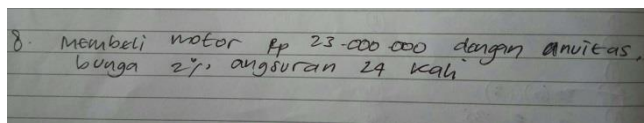 8. Membeli motor Rp 23.000.000 dengan anuitas,
bunga 2%, angsuran 24 kali